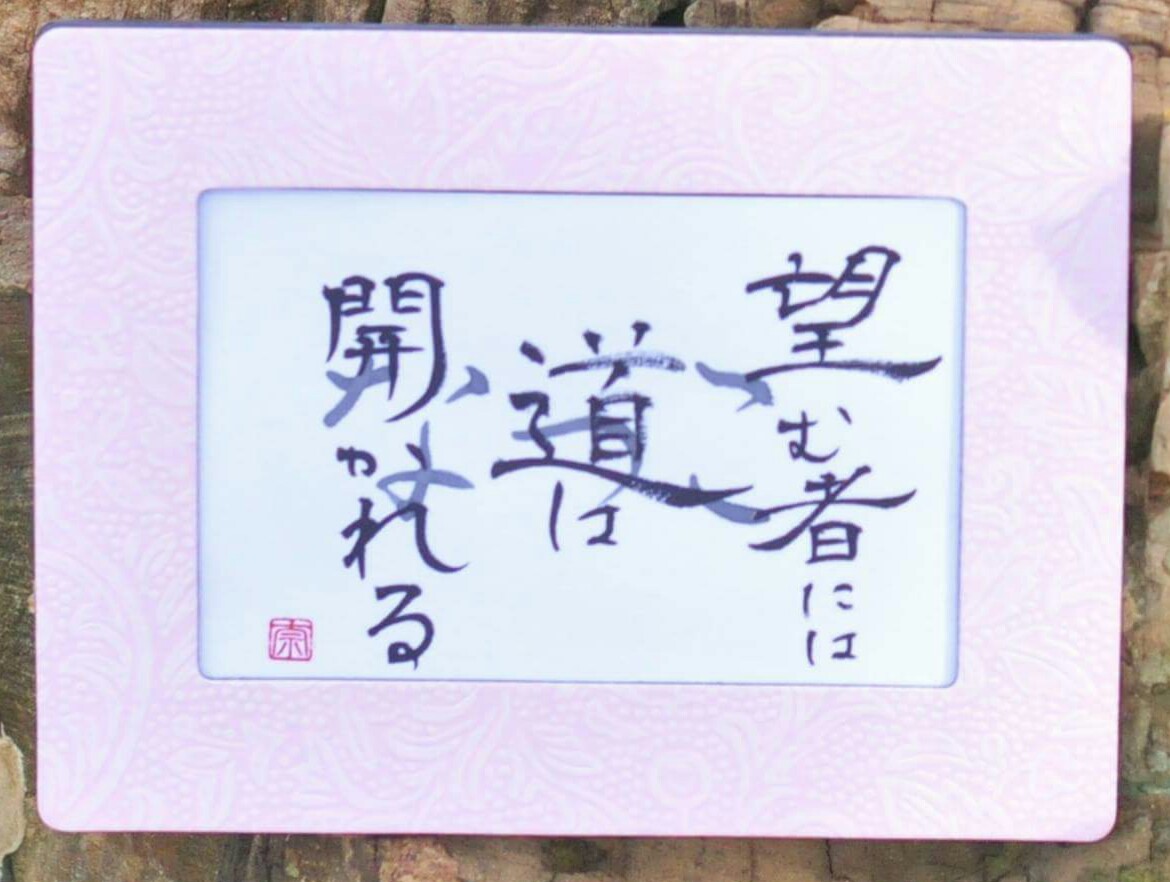 望む者には
道は
開かれる